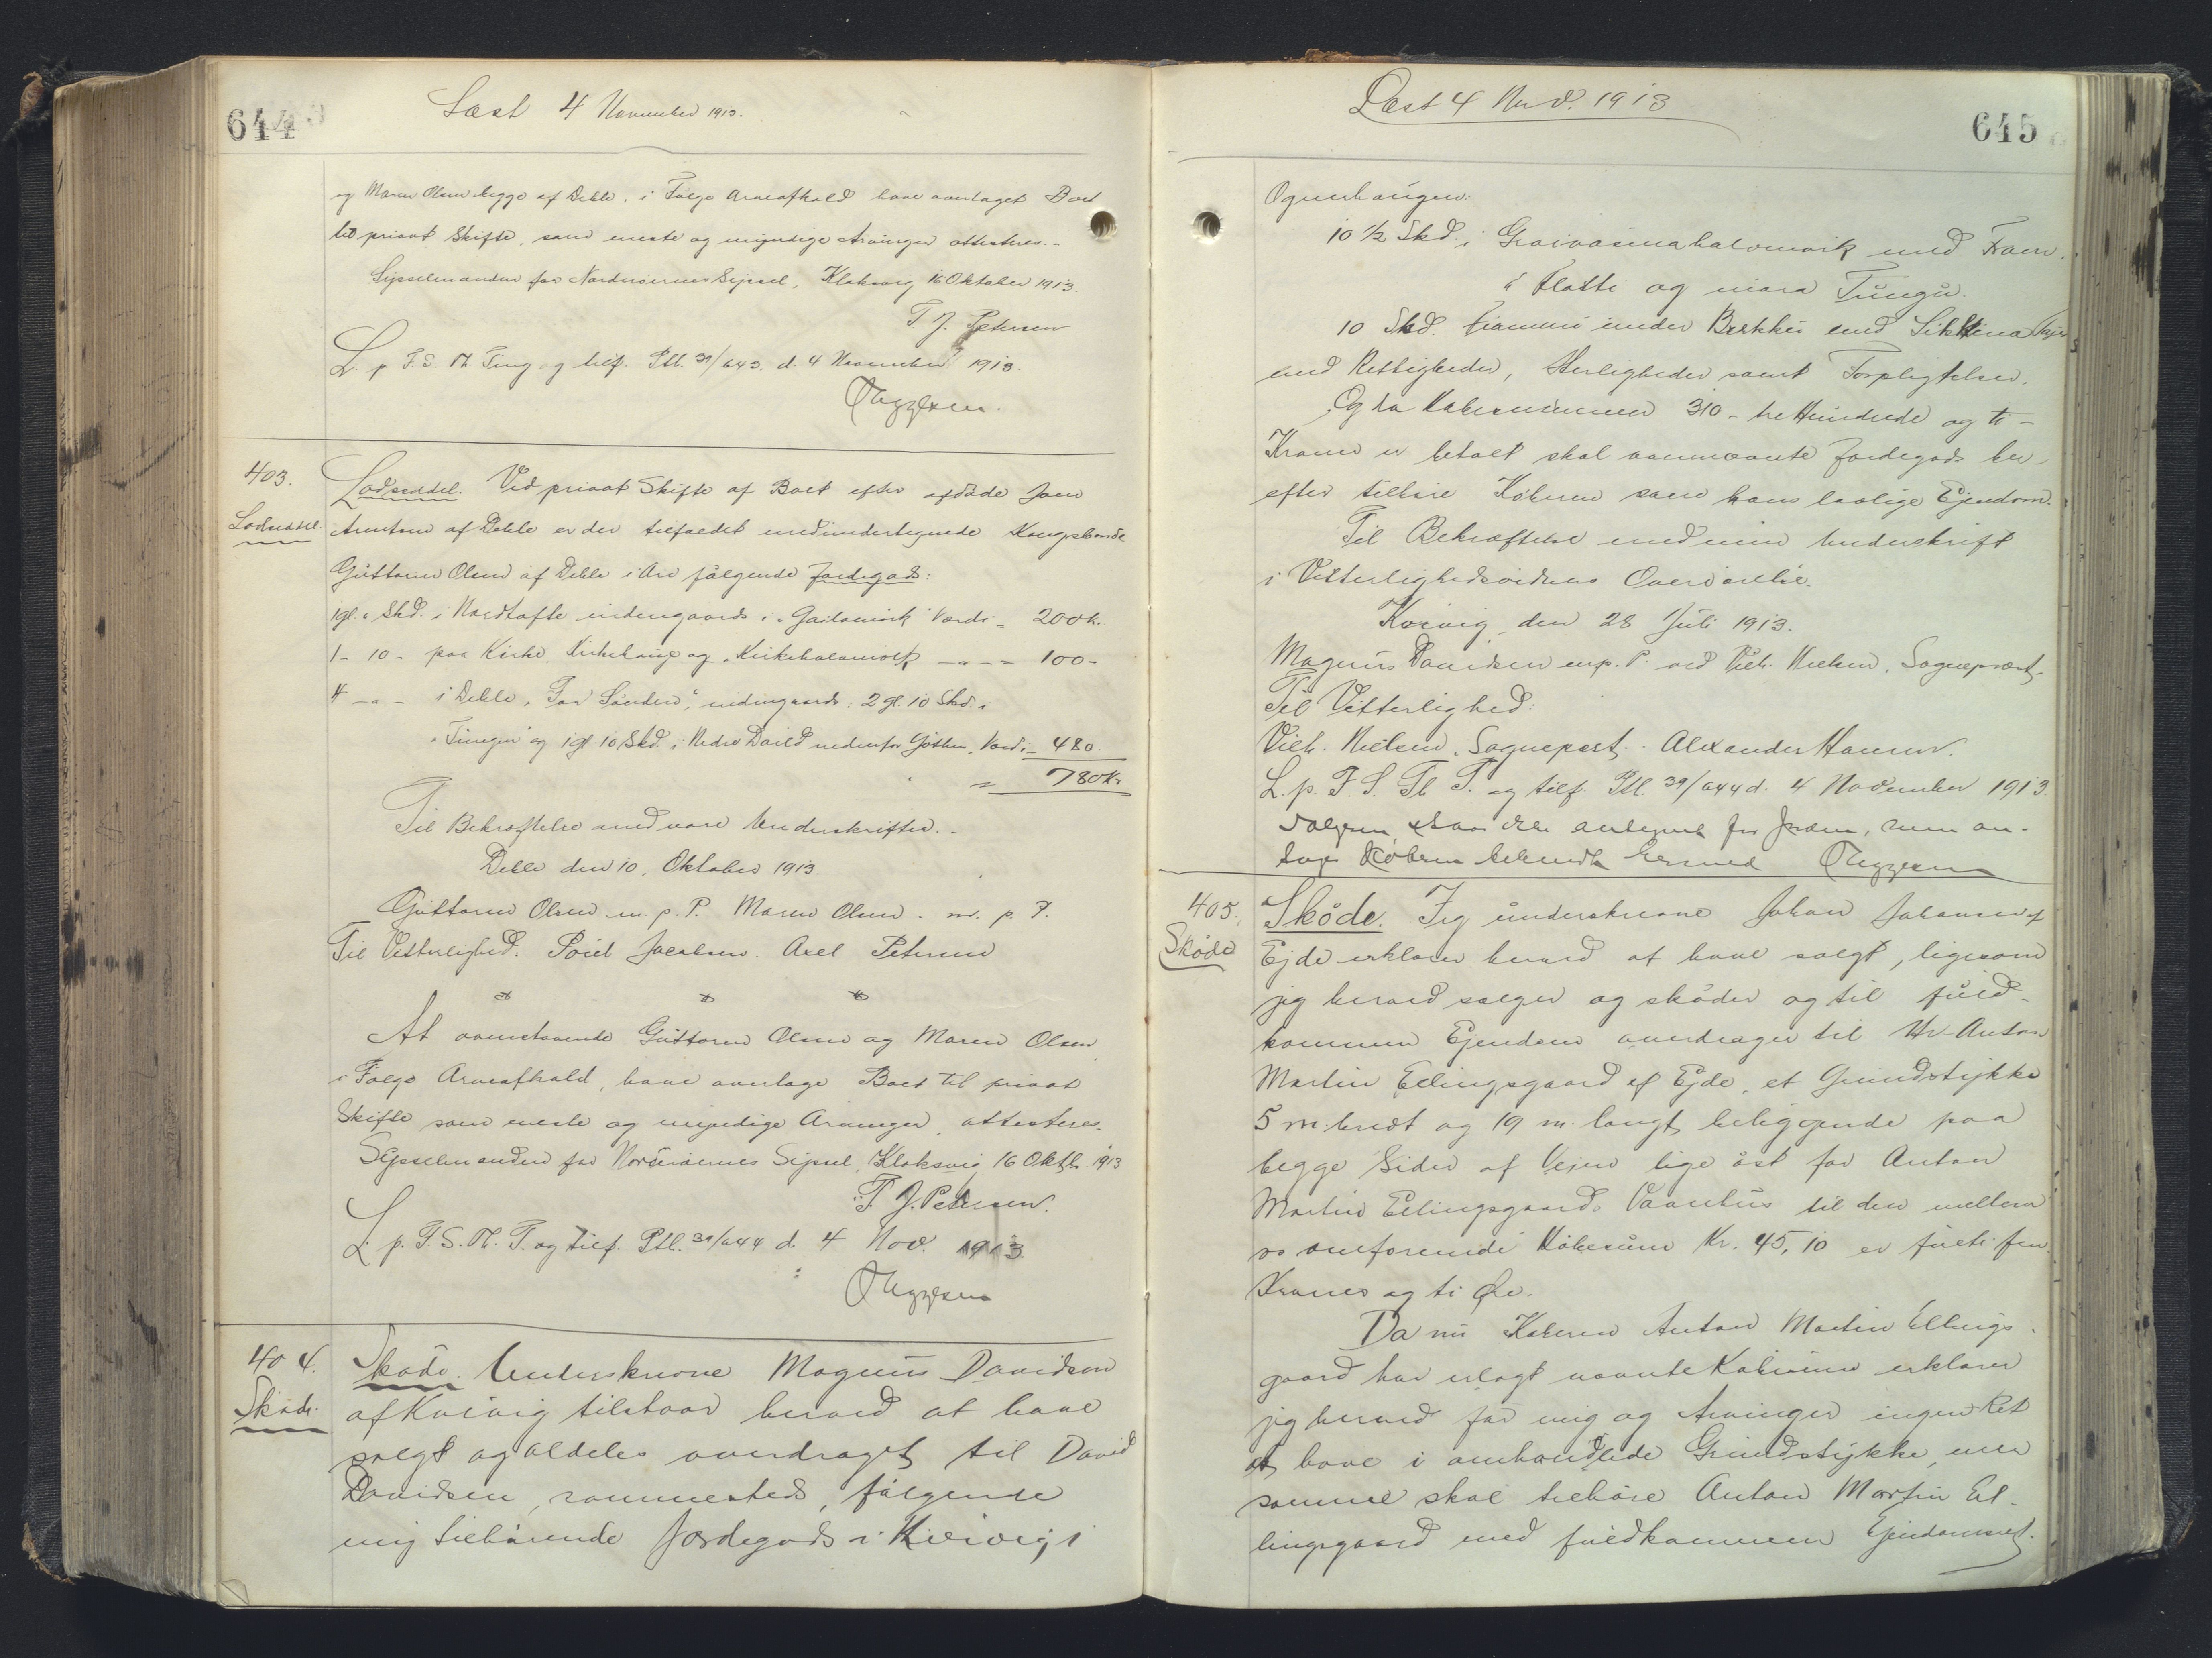 644
Læst 4 November 1913.
og Maren Olsen begge af Deble, i Følge Arveafkald have overtaget Boet
til privat Skifte, som eneste og myndige Arvinger attesteres.-
Sysselmanden for Norderøernes Syssel, Klaksvig 16 Oktober 1913.
T. J. Petersen
L. p. F. S. Th. Ting og tilf. Ptl. 39/643. d. 4 November 1913.
403.
Lodseddel.
Lodseddel. Ved privat Skifte af Boet efter afdøde Joen
Arntsen af Deble er der tilfaldet medundertegnede Kongsbonde
Guttorm Olsen af Deble i Arv følgende Jordegods:
1 gl. " Skd. i Nordtofte indengaards i "Gailamørk" Værdi - 200 Kr.
1 - 10 - paa Kirke, Kirkehauge og "Kirkehalamørk" - " - - 100 -
4 - " - i Deble, "Paa Sønderø", indengaards: 2 gl. 10 Skd. i
"Tungen" og 1 gl 10 Skd. i Nedre Dail nedenfor Gøtten, Værdi - 480.
= 780 Kr
Til Bekræftelse med vore Underskrifter. -
Deble den 10. Oktober 1913.
Guttorm Olsen m. p. P. Maren Olsen. m. p. P.
Til Vitterlighed: Poul Jacobsen. Axel Petersen
At ovenstaaende Guttorm Olsen og Maren Olsen,
i Følge Arveafkald, have overtage Boet til privat
Skifte som eneste og myndige Arvinger, attesteres.
Sysselmanden for Norderøernes Syssel, Klaksvig 16 Oktbr. 1913
T. J. Petersen.
L. p. F. S. Th. T. og tilf. Ptl. 39/644 d. 4 Nov. 1913.
404.
Skøde.
Skøde. Underskrevne Magnus Davidsen
af Kvivig tilstaar herved at have
solgt og aldeles overdraget til David
Davidsen, sammesteds, følgende
mig tilhørende Jordegods i Kvivig, i
645
Læst 4 Novb. 1913
Ognerhaugen:
10 ½ Skd. i Graivasinahalvmørk med Fram.
i Flatti og niara Tungu.
10 Skd. frammi under Berkku med
med Rettigheder, Herligheder samt Forpligtelser.
Og da Købesummen 310 - tre Hundrede og ti -
Kroner er betalt skal ovennævnte Jordegods her-
efter tilhøre Køberen som hans lovlige Ejendom.
Til Bekræftelse med min Underskrift
i Vitterlighedsvidners Overværelse.
Kvivig, den 28 Juli 1913.
Magnus Davidsen m. p. P. ved Vilh. Nielsen, Sognepræst.
Til Vitterlighed:
Vilh. Nielsen, Sognepræst. Alexander Hansen.
L. p. F. S. Th. T. og tilf. Ptl. 39/644 d. 4 November 1913.
Sælgeren staar ikke antegnet for Jorden, som an-
tages Køberen bekendt hermed
405.
Skøde
Skøde. Jeg underskrevne Johan Johansen af
Ejde erklærer herved at have solgt, ligesom
jeg herved sælger og skøder og til fuld-
kommen Ejendom overdrager til Hr. Anton
Martin Ellingsgaard af Ejde, et Grundstykke
5 m. bredt og 19 m. langt, beliggende paa
begge Sider af Vejen lige øst for Anton
Martin Ellingsgaards Vaanhus til den mellem
os omforenede Købesum Kr. 45,10 er fireti fem
Kroner og ti Øre.
Da nu Køberen Anton Martin Ellings-
gaard har erlagt nævnte Købesum erklærer
jeg herved for mig og Arvinger ingen Ret
at have i omhandlede Grundstykke, men
samme skal tilhøre Anton Martin El-
lingsgaard med fuldkommen Ejendomsret.